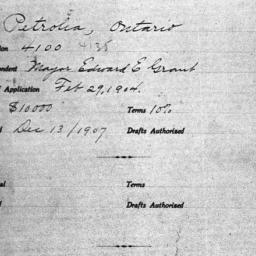 Petrolia, Ontario
ion 4100 4135
ondent Mayor Edward E Grant
l Application Feb 29, 1904.
$10000 Terms 10%
d Dec 13/1907 Drafts Authorised
al Terms
d Drafts Authorised